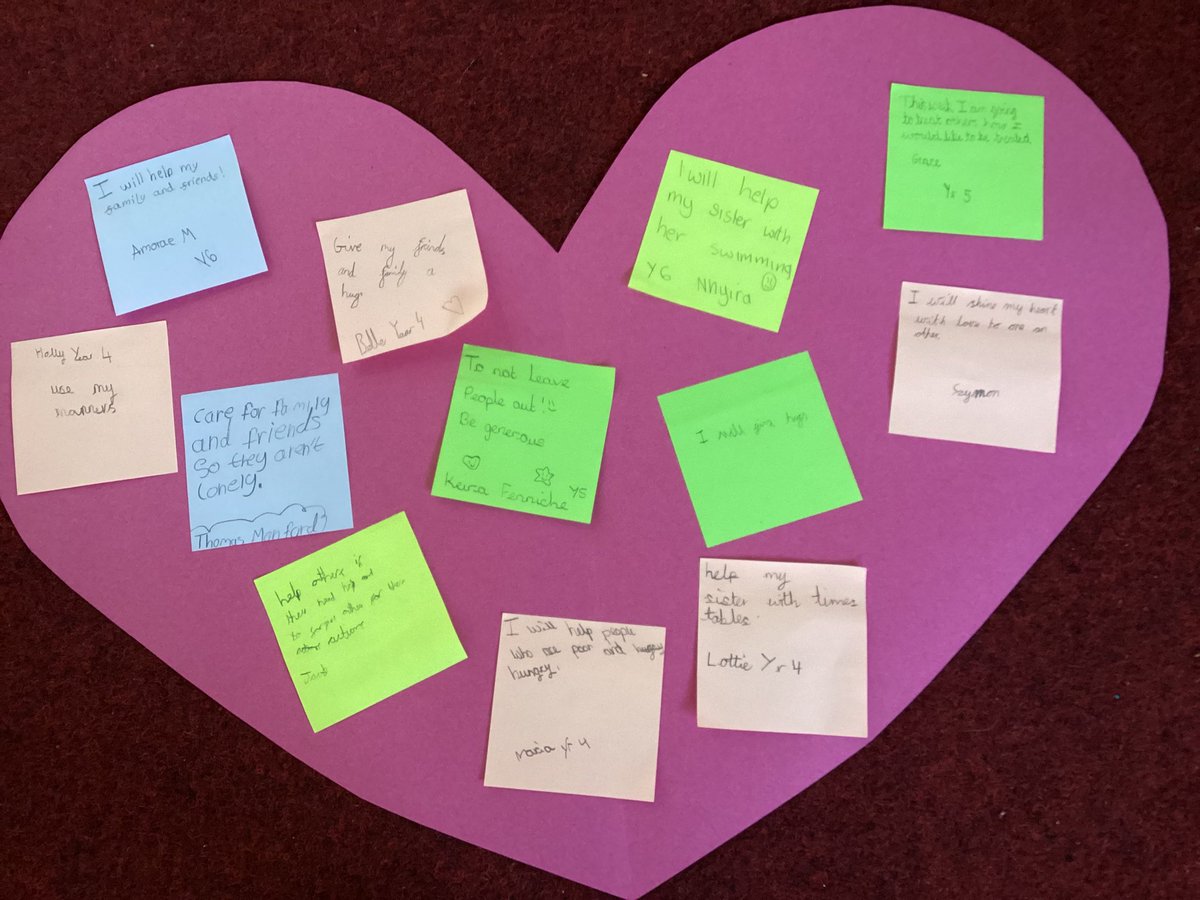 I will help my
family and friends!
Amorae M
Y6
Give my friends
and family a
hug
Belle Year 4
I will help
my sister with
her swimming
Y6 Nhyira
This week I am going
to treat others how I
would like to be treated.
Grace
Yr 5
Molly Year 4
use my
manners
Care for family
and friends
so they aren't
lonely.
Thomas Manford
To not leave
People out!
Be generous
Keira Fenniche Y5
I will give hugs
I will shine my heart
with love to one an
other.
Szymon
help others if
their need help and
to other for their
Jacob
I will help people
who are poor and hungry
hungry.
Maria Yr 4
help my
sister with times
tables.
Lottie Yr 4